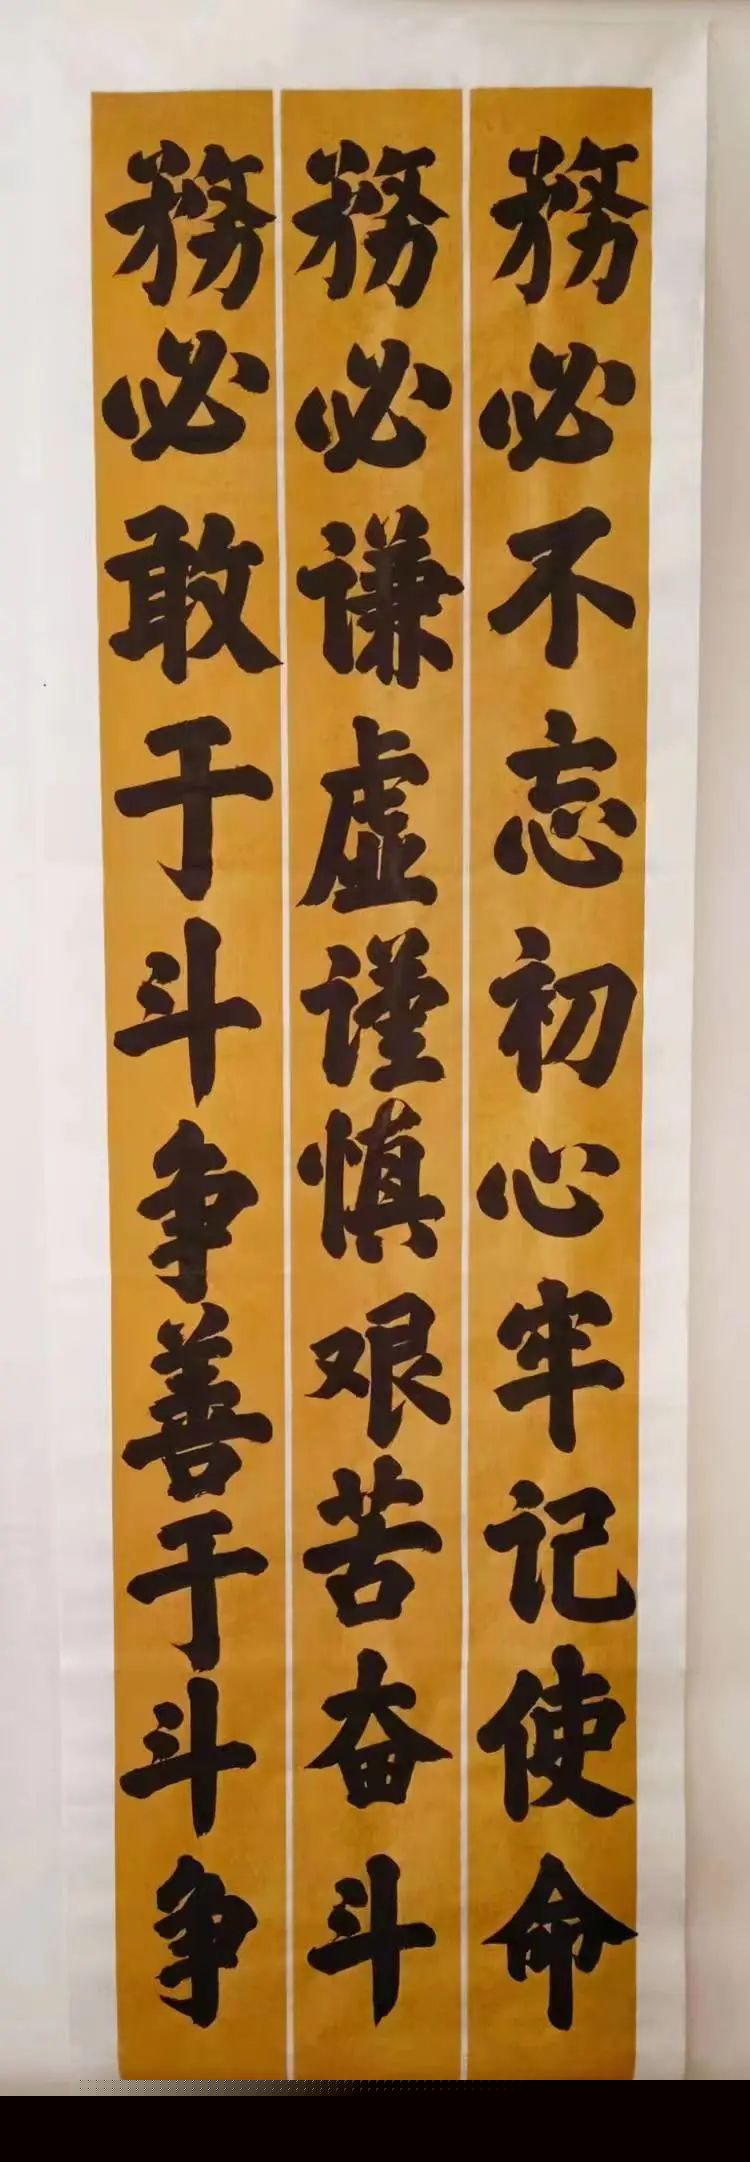 務必不忘初心牢记使命
務必谦虚谨慎艰苦奋斗
務必敢于斗争善于斗争